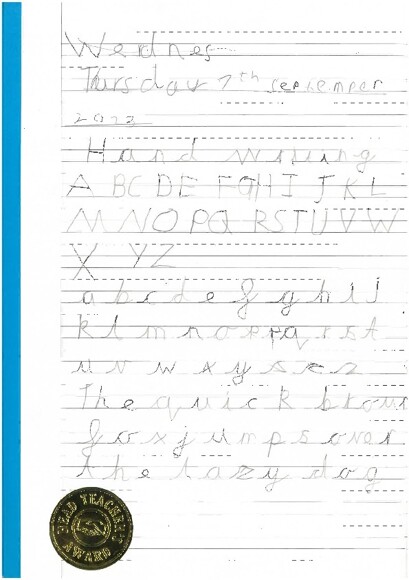 Wednes
Thursday 7th september
2023
Hand writing
A BC DE FGHI J K L
M N O P Q RSTUVW
X YZ
a b c d e f g h i j
k l m n o p q r s t
u v w x y z
The quick brown
fox jumps over
the lazy dog
HEAD TEACHER'S
AWARD